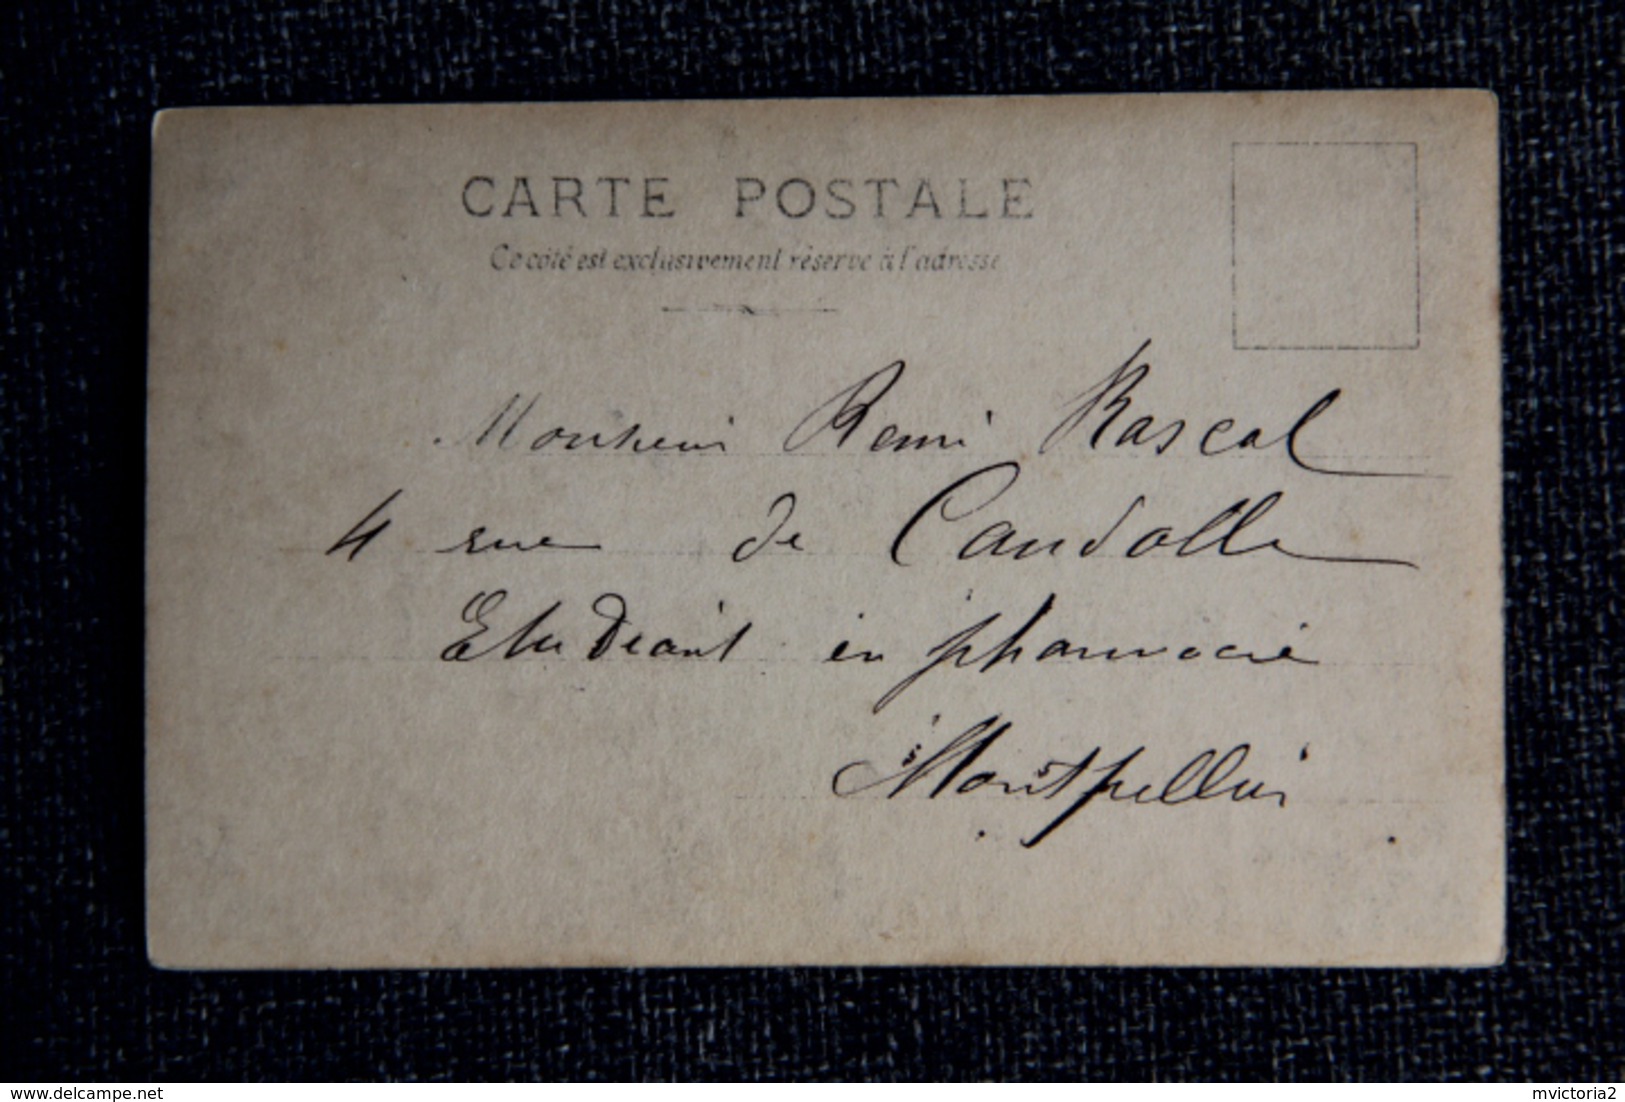 CARTE POSTALE
Ce côté est exclusivement réservé à l'adresse
Monsieur Remi Rascal
4 rue de Candolle
Etudiant en pharmacie
Montpellier
www.delcampe.net
mvictoria2